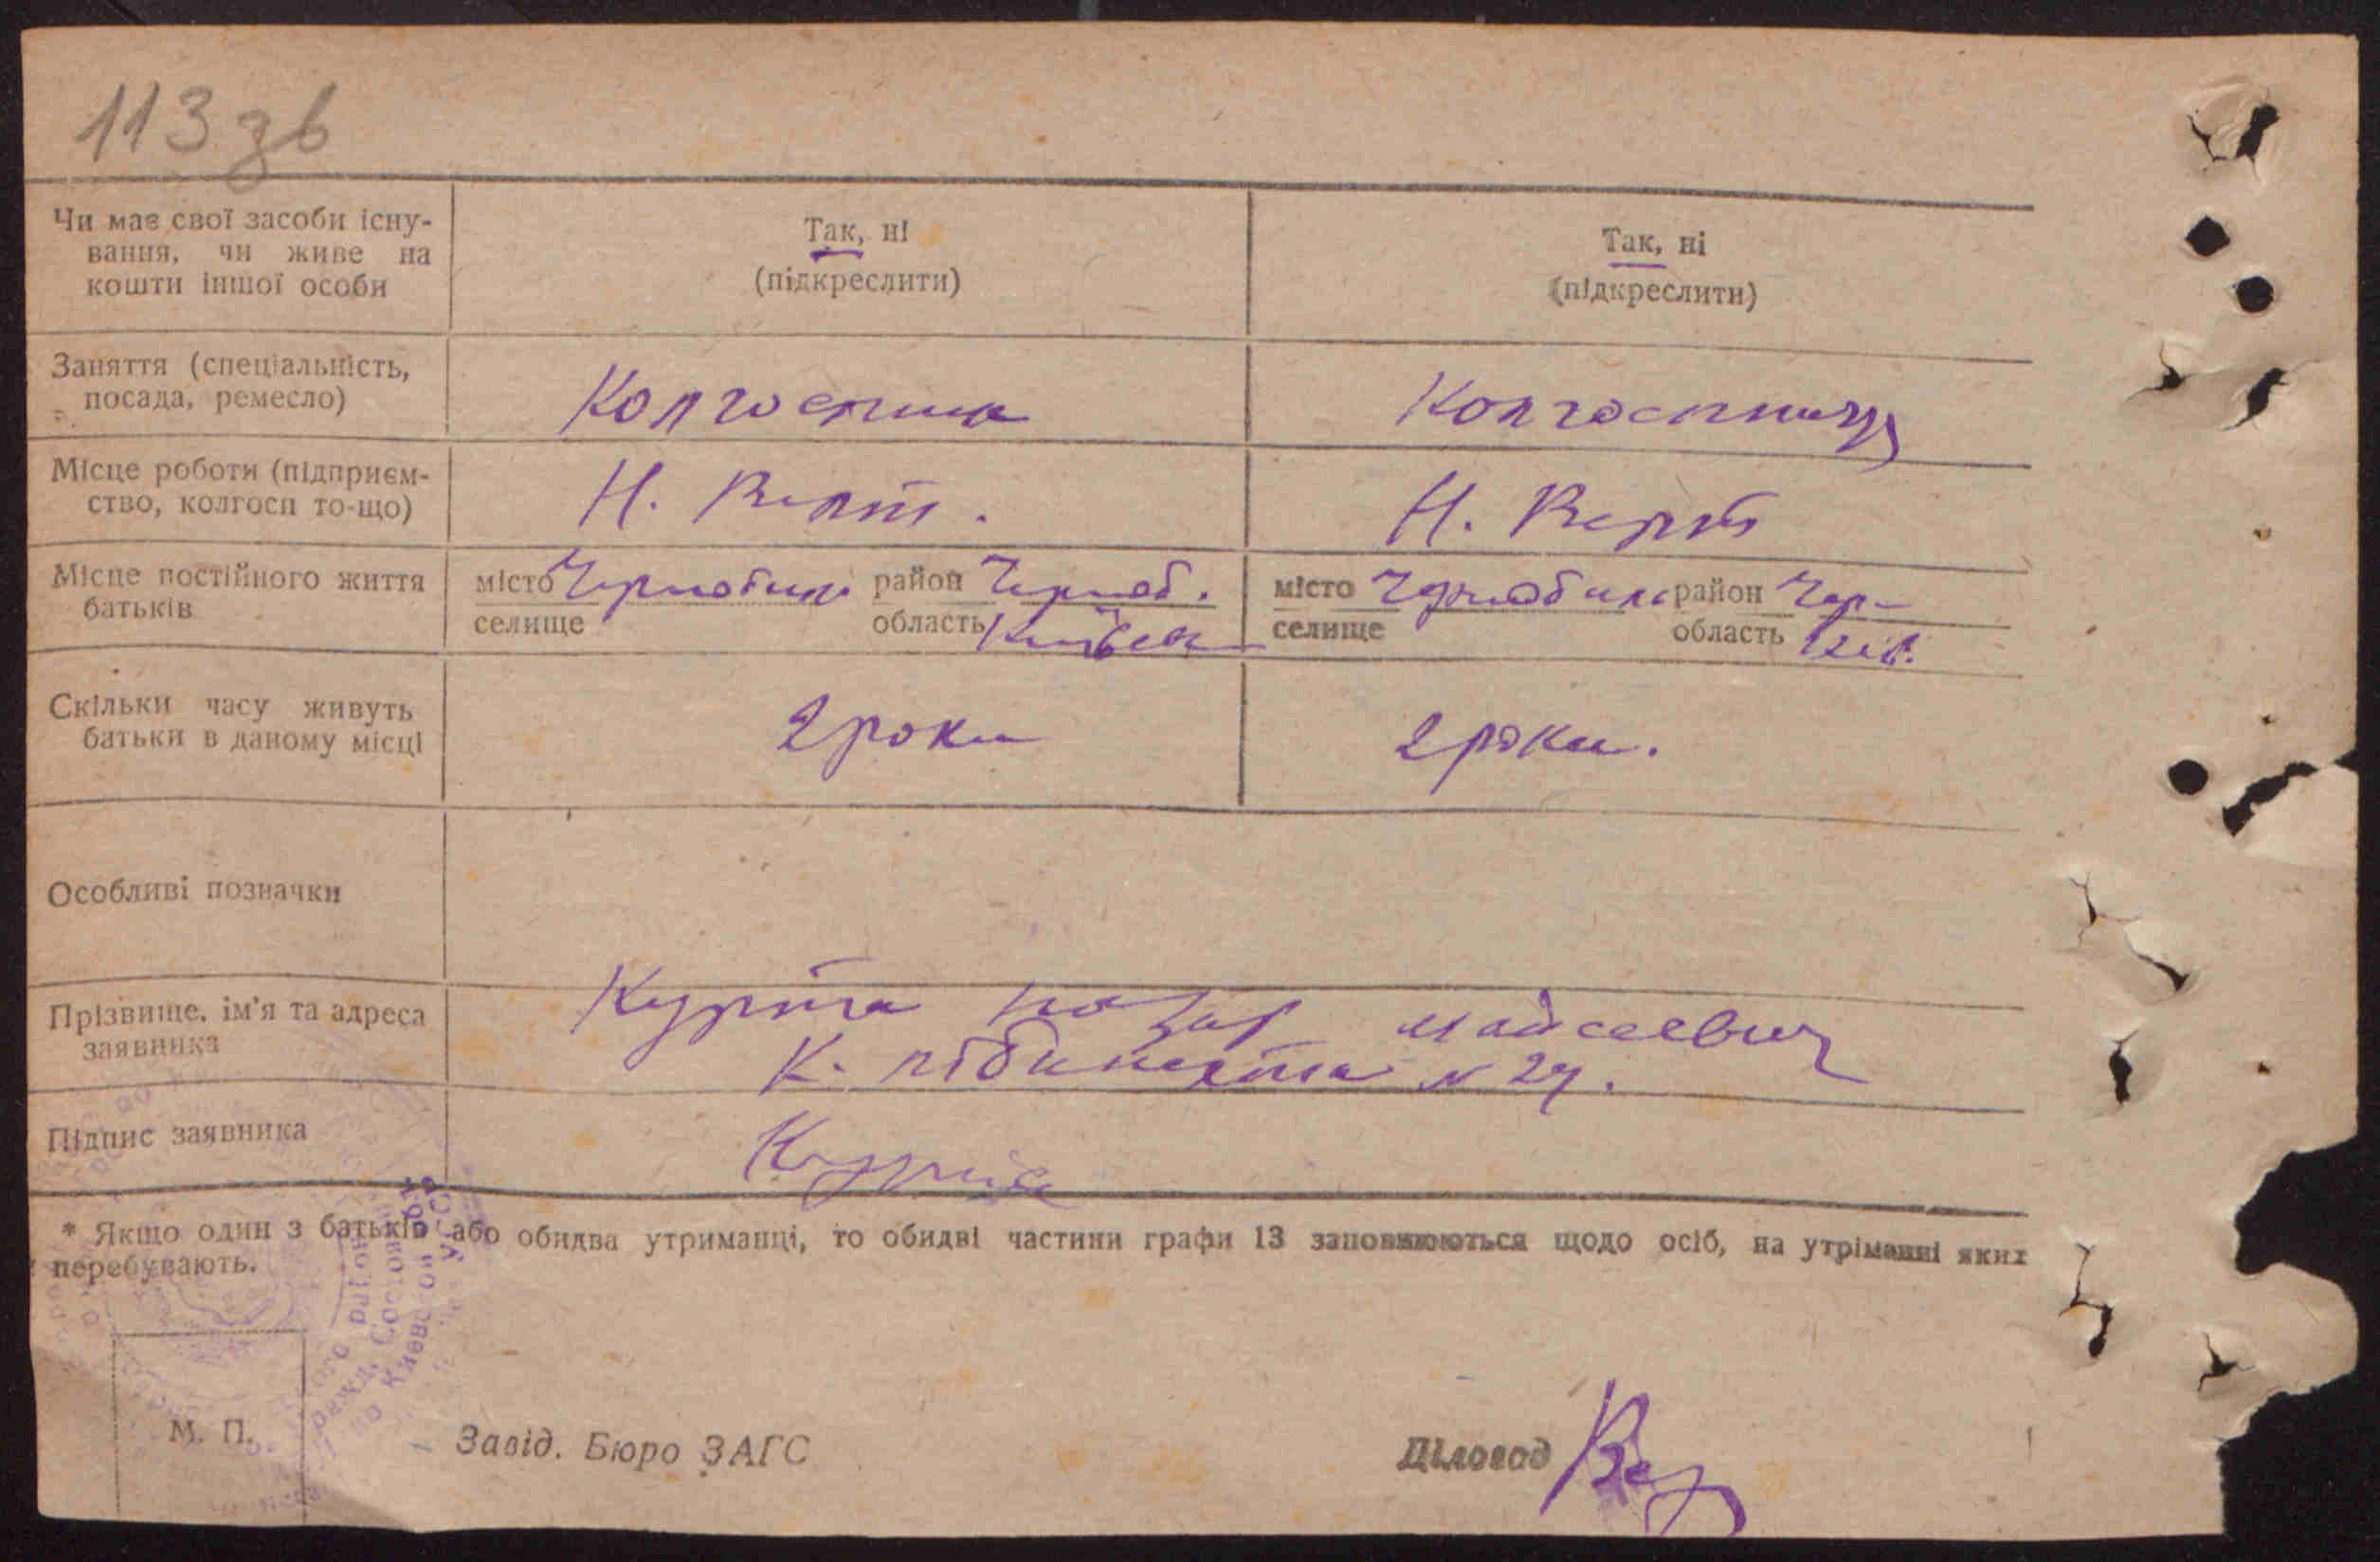 113 зв
Чи має свої засоби існу-
вання, чи живе на
кошти іншої особи
Так, ні
(підкреслити)
Так, ні
(підкреслити)
Заняття (спеціальність,
посада, ремесло)
Колгоспник
Колгоспниця
Місце роботи (підприєм-
ство, колгосп то-що)
Н.
Н.
Місце постійного життя
батьків
місто Чорнобиль район Чорноб.
селище область Київськ
місто Чорнобиль район Чор-
селище область Київ.
Скільки часу живуть
батьки в даному місці
2 роки
2 роки.
Особливі позначки
Прізвище, ім'я та адреса
заявника
Назар Мойсеевич
К. Лібкнехта № 24.
Підпис заявника
* Якщо один з батьків або обидва утриманці, то обидві частини графи 13 заповнюються щодо осіб, на утріманні яких
перебувають.
М. П.
Завід. Бюро ЗАГС
Діловод